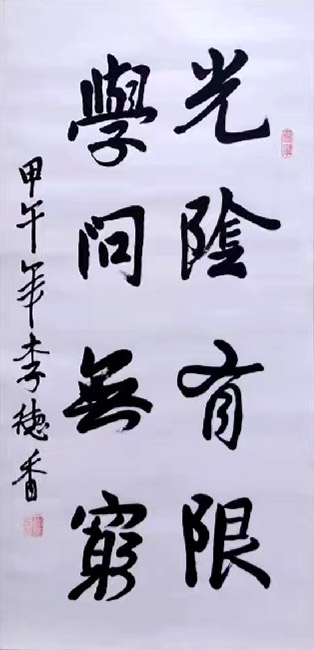 光陰有限
學問無窮
甲午年李穗香